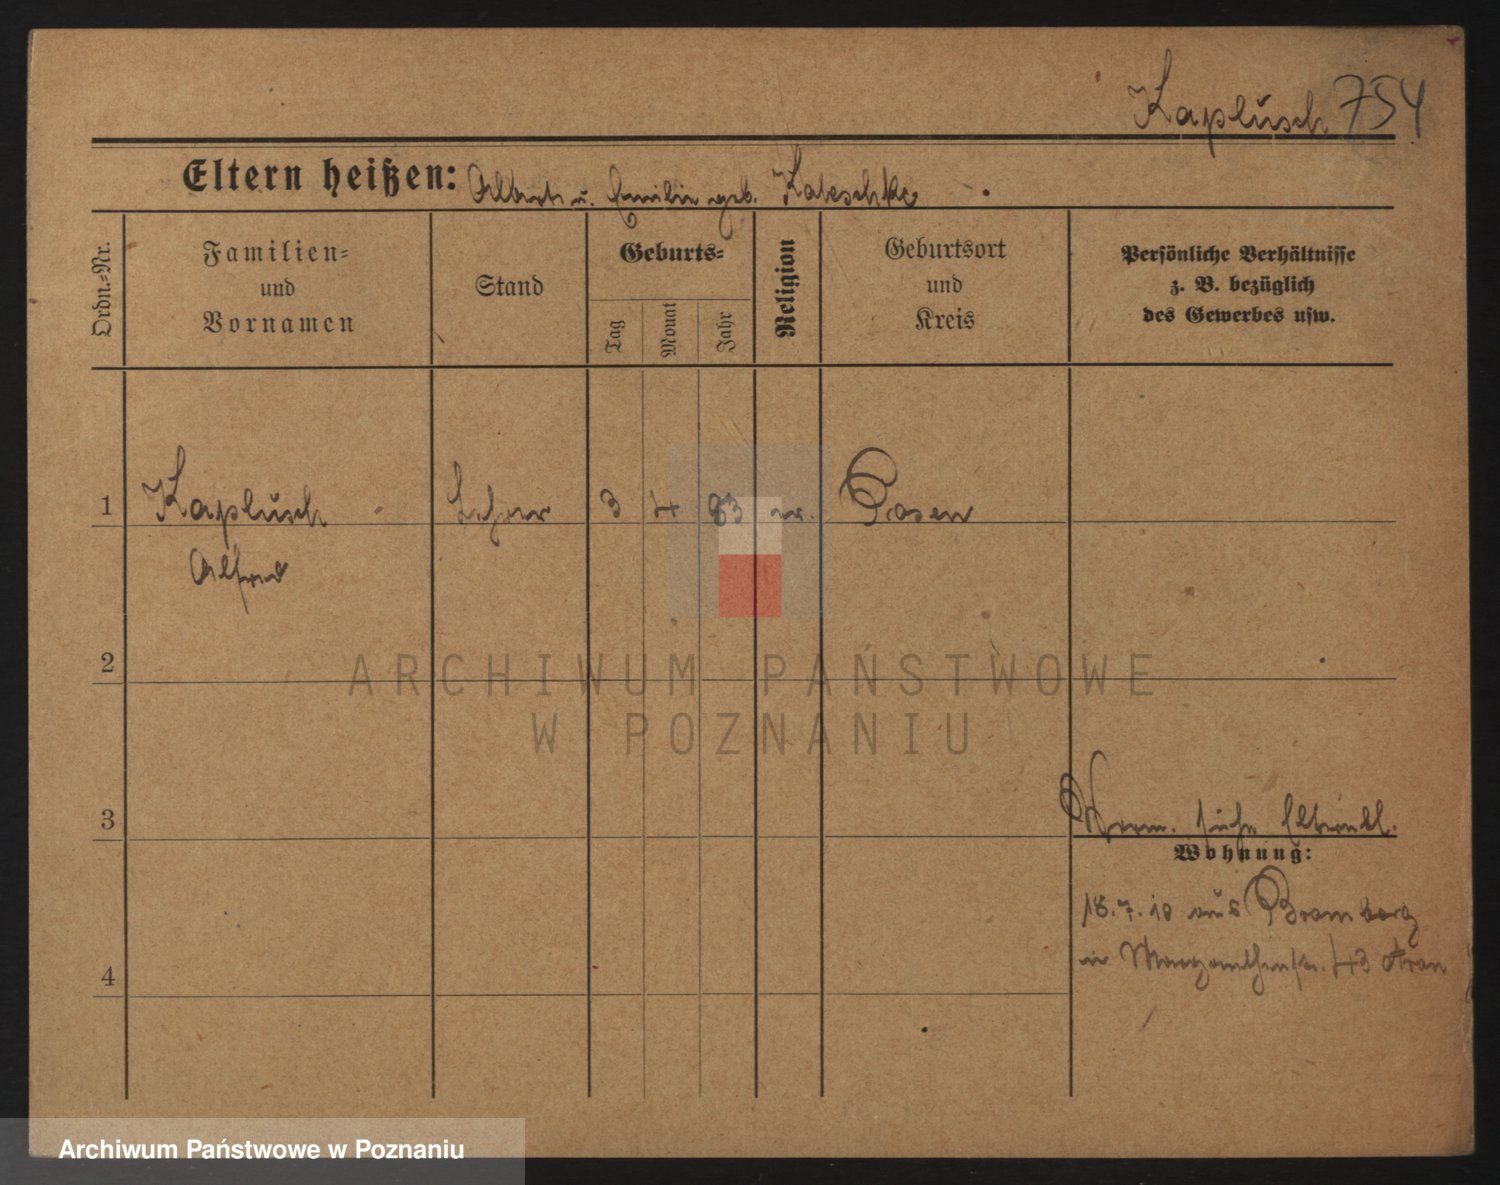 Kaplusch 754
Eltern heißen: Albert u. Emilie geb. Kaleschke
Ordn.-Nr.
Familien- und Vornamen
Stand
Geburts-
Tag
Monat
Jahr
Religion
Geburtsort und Kreis
Persönliche Verhältnisse
z. B. bezüglich
des Gewerbes usw.
1 Kaplusch Lehrer 3 4 83 ev. Posen
Alfred
2
ARCHIWUM PAŃSTWOWE
W POZNANIU
3
Wohnung:
18.7.10 aus Bromberg
in 43
4
Archiwum Państwowe w Poznaniu